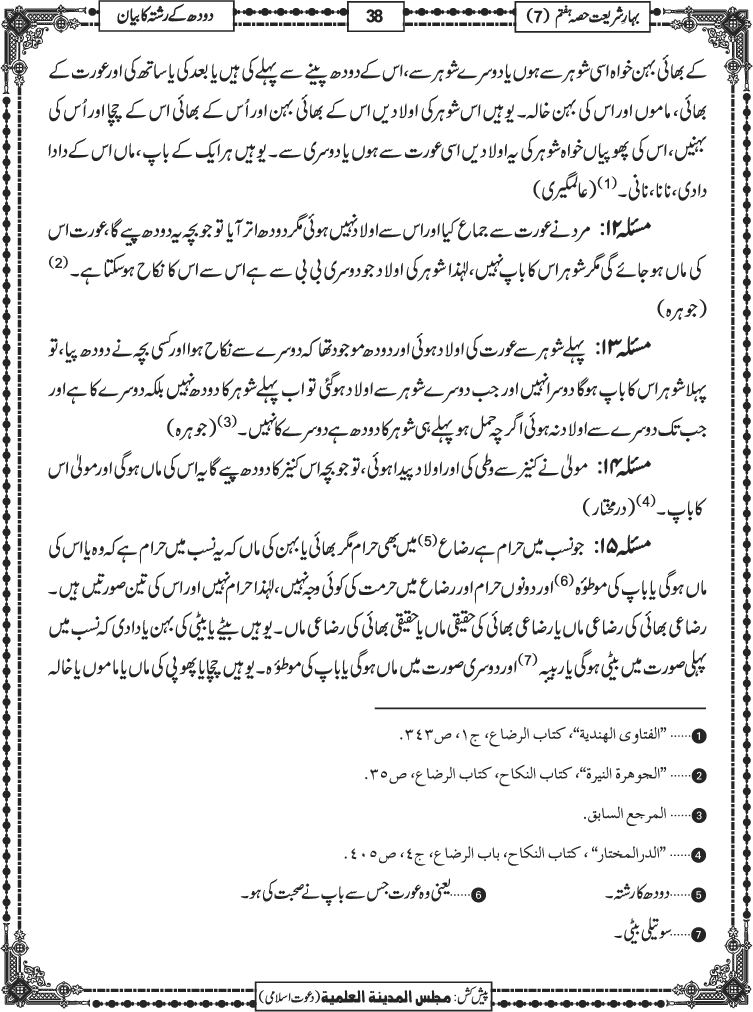 بہارِ شریعت حصہ ہفتم (7)
38
دودھ کے رشتہ کا بیان
کے بھائی بہن خواہ اسی شوہر سے ہوں یا دوسرے شوہر سے، اس کے دودھ پینے سے پہلے کی ہیں یا بعد کی یا ساتھ کی اور عورت کے
بھائی، ماموں اور اس کی بہن خالہ۔ یوہیں اس شوہر کی اولادیں اس کے بھائی بہن اور اُس کے بھائی اس کے چچا اور اُس کی
بہنیں، اس کی پھوپیاں خواہ شوہر کی یہ اولادیں اسی عورت سے ہوں یا دوسری سے۔ یوہیں ہر ایک کے باپ، ماں اس کے دادا
دادی، نانا، نانی۔(1) (عالمگیری)
مسئلہ ۱۲: مرد نے عورت سے جماع کیا اور اس سے اولاد نہیں ہوئی مگر دودھ اتر آیا تو جو بچہ یہ دودھ پیے گا، عورت اس
کی ماں ہو جائے گی مگر شوہر اس کا باپ نہیں، لہٰذا شوہر کی اولاد جو دوسری بی بی سے ہے اس سے اس کا نکاح ہوسکتا ہے۔(2)
(جوہرہ)
مسئلہ ۱۳: پہلے شوہر سے عورت کی اولاد ہوئی اور دودھ موجود تھا کہ دوسرے سے نکاح ہوا اور کسی بچہ نے دودھ پیا، تو
پہلا شوہر اس کا باپ ہوگا دوسرا نہیں اور جب دوسرے شوہر سے اولاد ہوگئی تو اب پہلے شوہر کا دودھ نہیں بلکہ دوسرے کا ہے اور
جب تک دوسرے سے اولاد نہ ہوئی اگرچہ حمل ہو پہلے ہی شوہر کا دودھ ہے دوسرے کا نہیں۔(3) (جوہرہ)
مسئلہ ۱۴: مولیٰ نے کنیز سے وطی کی اور اولاد پیدا ہوئی، تو جو بچہ اس کنیز کا دودھ پیے گا یہ اس کی ماں ہوگی اور مولیٰ اس
کا باپ۔(4) (درمختار)
مسئلہ ۱۵: جو نسب میں حرام ہے رضاع(5) میں بھی حرام مگر بھائی یا بہن کی ماں کہ یہ نسب میں حرام ہے کہ وہ یا اس کی
ماں ہوگی یا باپ کی موطؤہ(6) اور دونوں حرام اور رضاع میں حرمت کی کوئی وجہ نہیں، لہٰذا حرام نہیں اور اس کی تین صورتیں ہیں۔
رضاعی بھائی کی رضاعی ماں یا رضاعی بھائی کی حقیقی ماں یا حقیقی بھائی کی رضاعی ماں۔ یوہیں بیٹے یا بیٹی کی بہن یا دادی کہ نسب میں
پہلی صورت میں بیٹی ہوگی یا ربیبہ(7) اور دوسری صورت میں ماں ہوگی یا باپ کی موطؤہ۔ یوہیں چچا یا پھوپی کی ماں یا ماموں یا خالہ
1 ...... ”الفتاوى الهندية“، کتاب الرضاع، ج١، ص٣٤٣.
2 ...... ”الجوهرة النيرة“، کتاب النکاح، کتاب الرضاع، ص٣٥.
3 ...... المرجع السابق.
4 ...... ”الدرالمختار“، کتاب النکاح، باب الرضاع، ج٤، ص٤٠٥.
5 ...... دودھ کا رشتہ۔ 6 ...... یعنی وہ عورت جس سے باپ نے صحبت کی ہو۔
7 ...... سوتیلی بیٹی۔
پیش کش: مجلس المدینة العلمیة (دعوت اسلامی)